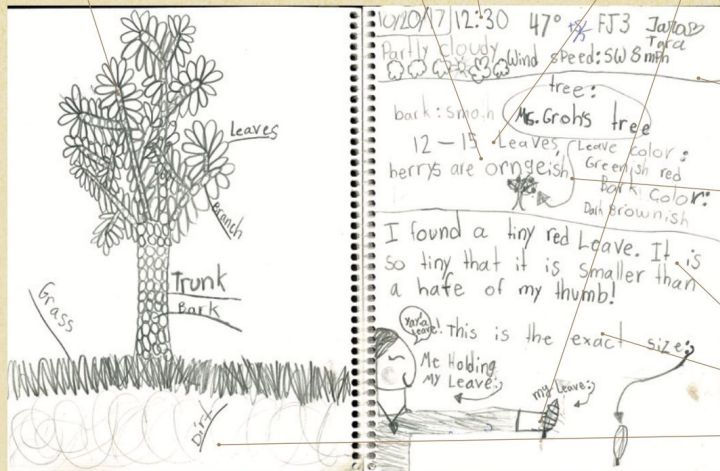 Leaves
Branch
Trunk
Bark
Grass
Dirt
10/20/17 12:30 47° FJ3
Tara
Partly cloudy Wind speed: SW 8 mph
tree:
bark: smoth Ms. Groh's tree
12 - 15 Leaves,
berrys are orngeish
Leave color:
Greenish red
Bark Color:
Dark Brownish
I found a tiny red Leave. It is
so tiny that it is smaller than
a hafe of my thumb!
Leave!
This is the exact size:
Me Holding
My Leave:
my Leave: